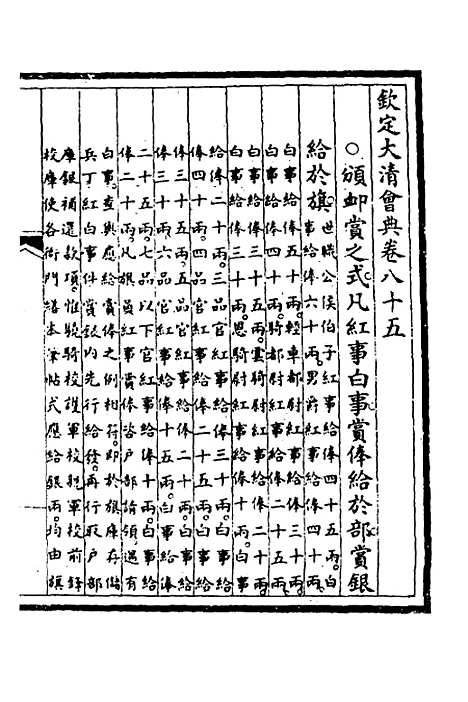 欽定大清會典卷八十五
○頒卹賞之式凡紅事白事賞俸給於部賞銀
給於旗世職公侯伯子紅事給俸四十五兩白
事給俸六十兩男爵紅事給俸四十兩
白事給俸五十兩輕車都尉紅事給俸三十兩
白事給俸四十兩騎都尉紅事給俸二十五兩
白事給俸三十兩雲騎尉紅事給俸二十兩
白事給俸二十五兩恩騎尉紅事給俸十兩白事
給俸二十兩三品官紅事給俸三十兩白事給
俸四十兩四品官紅事給俸二十五兩白事給
俸三十五兩五品官紅事給俸二十兩白事給
俸三十兩六品官紅事給俸十五兩白事給俸
二十五兩七品以下官紅事給俸十兩白事給
俸二十兩凡旗員紅事賞俸咨戶部請領遇有
白事查與應給賞俸之例相符即於旗庫存儲
兵丁紅白事件賞銀內先行給發再行取戶部
庫銀補還款項惟驍騎校護軍校親軍校前鋒
校庫使各衙門繕本筆帖式應給銀兩均由旗